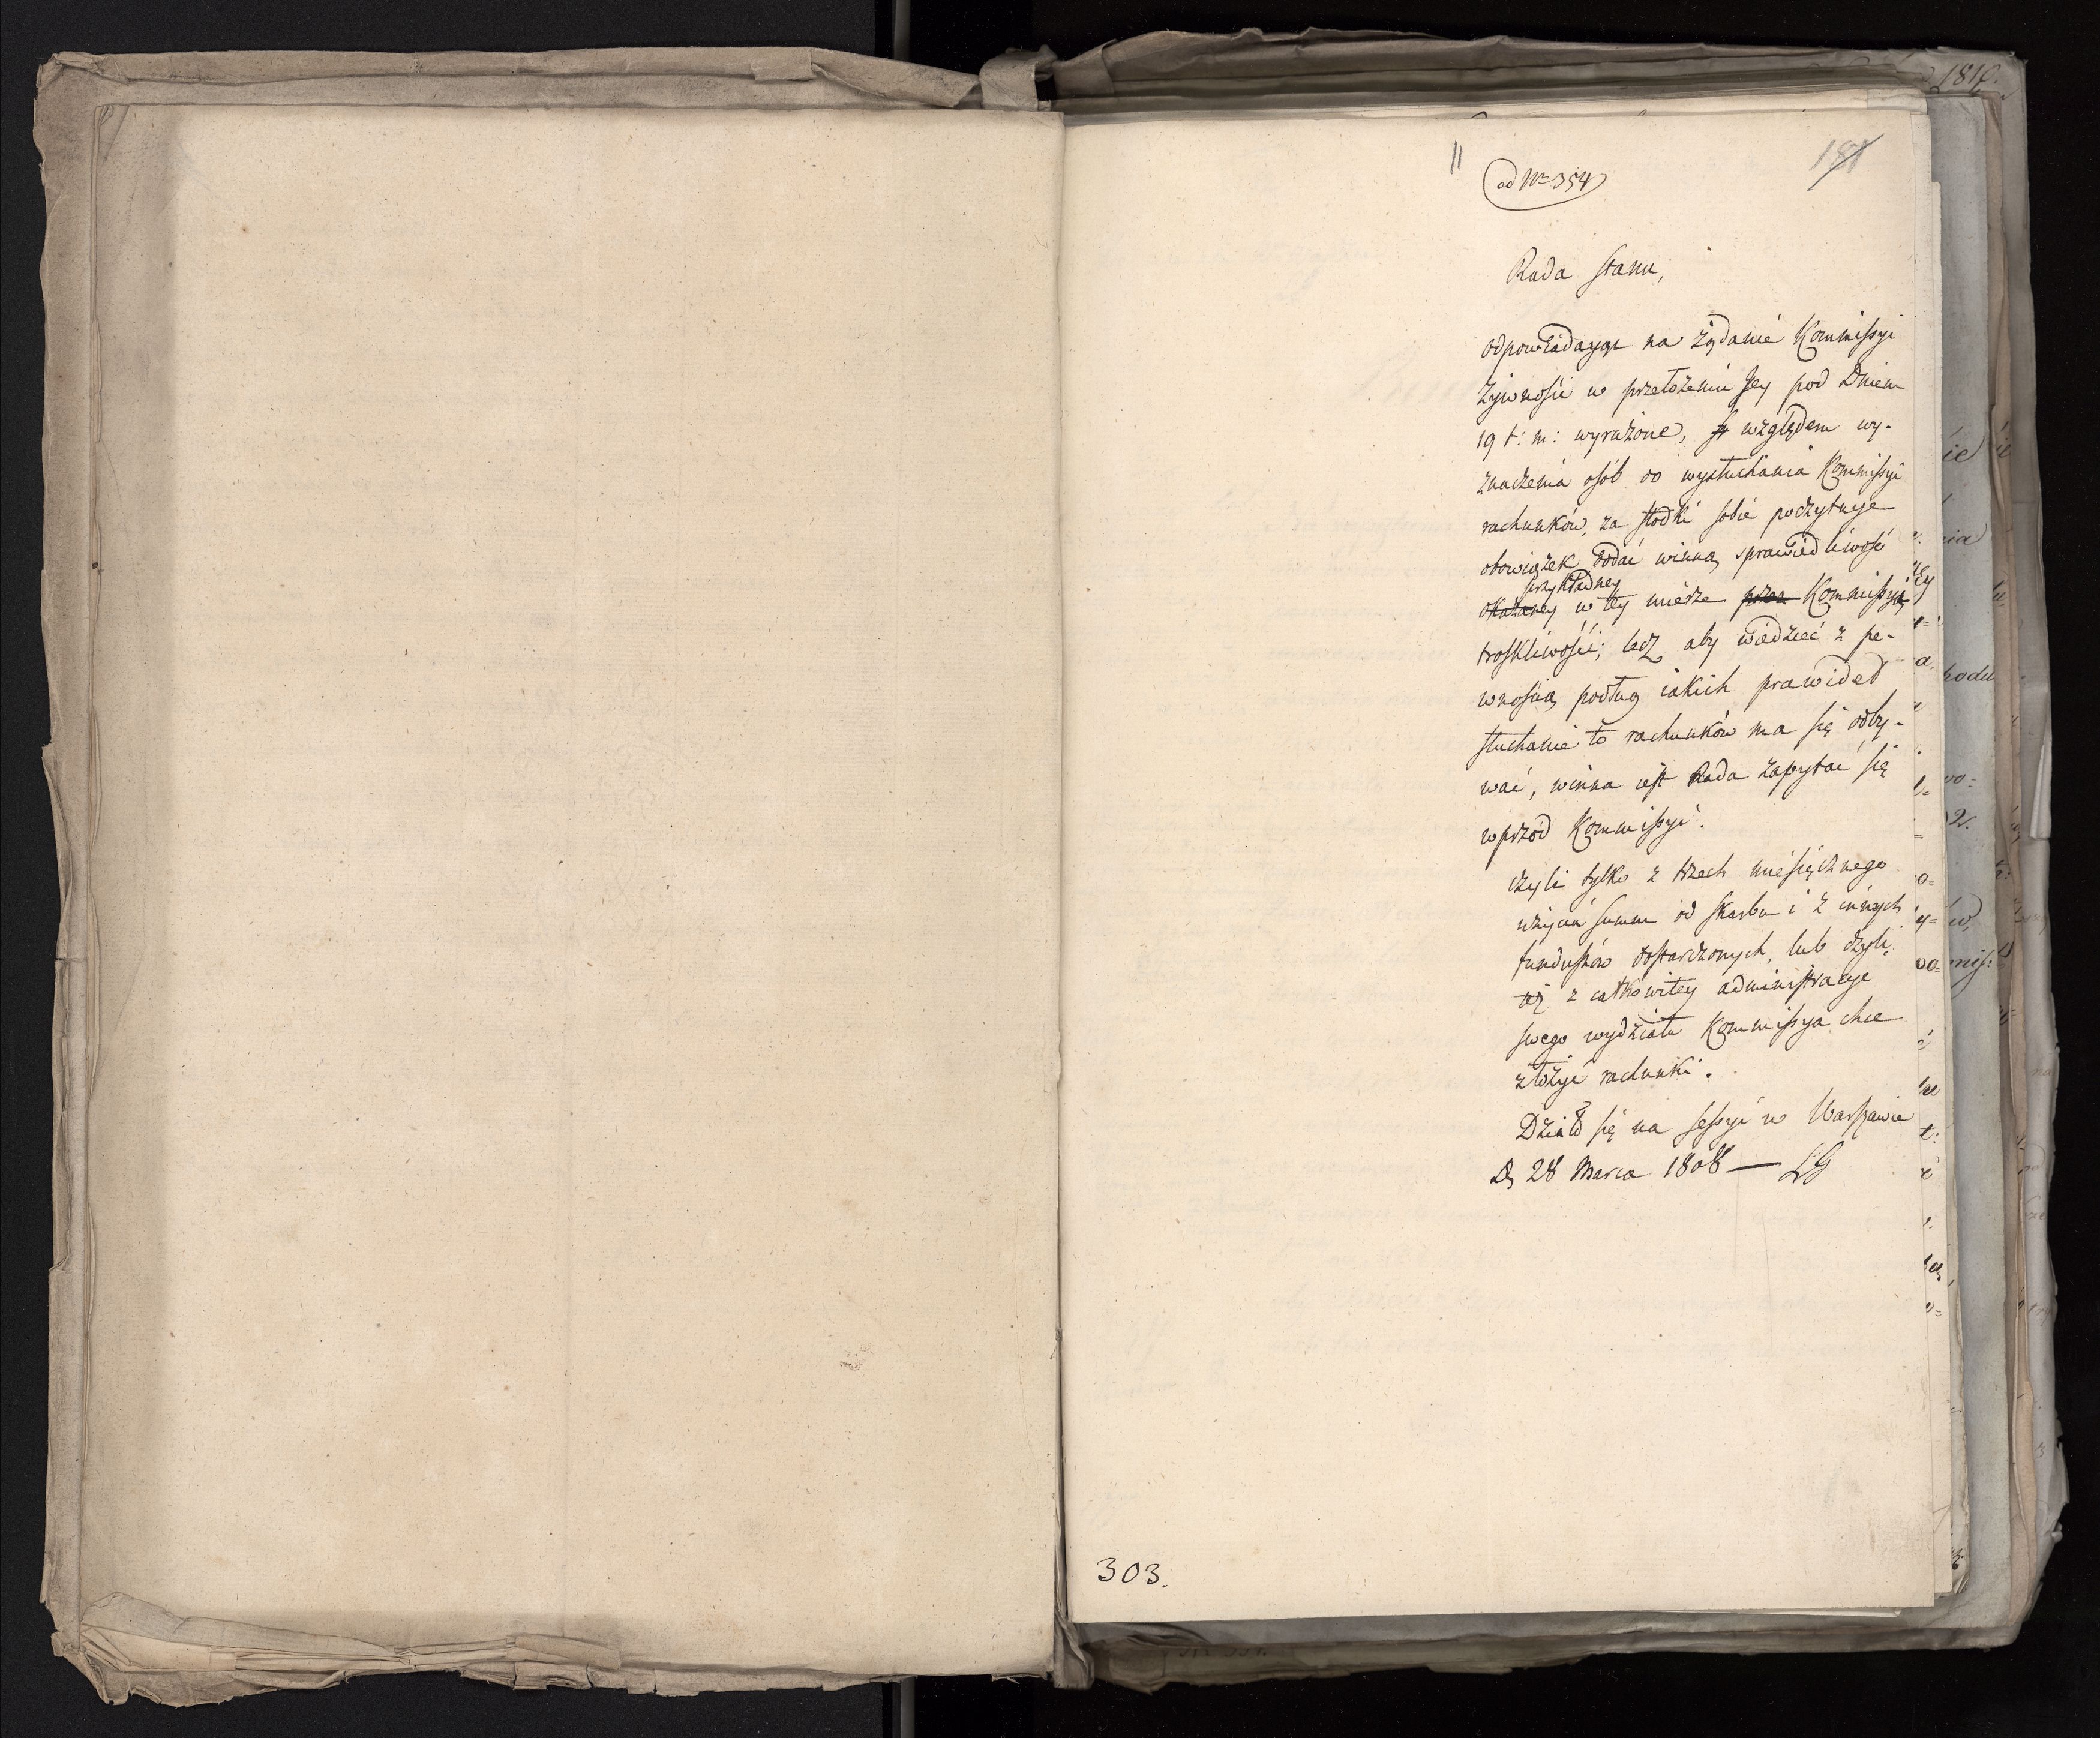 11
ad Nro 354
181
Rada Stanu,
odpowiadaiąc na żądanie Kommissyi
Żywności w przełożeniu Jey pod Dniem
19 t: m: wyrażone, względem wy-
znaczenia osób do wysłuchania Kommissyi
rachunków, za słodki sobie poczytuje
obowiązek oddać winną sprawiedliwość
przykładney
okazaney w tey mierze przez Kommissyią
troskliwości; lecz aby wiedzieć z pe-
wnością podług iakich prawideł
słuchanie to rachunków ma się odby-
wać, winna iest Rada zapytać się
wprzód Kommissyi.
czyli tylko z trzech miesięcznego
użycia summ od Skarbu i z innych
funduszów dostarczonych, lub czyli
też z całkowitey administracyi
swego wydziału Kommissya chce
złożyć rachunki.
Działo się na sessyi w Warszawie
D. 28 Marca 1808 — LG
303.